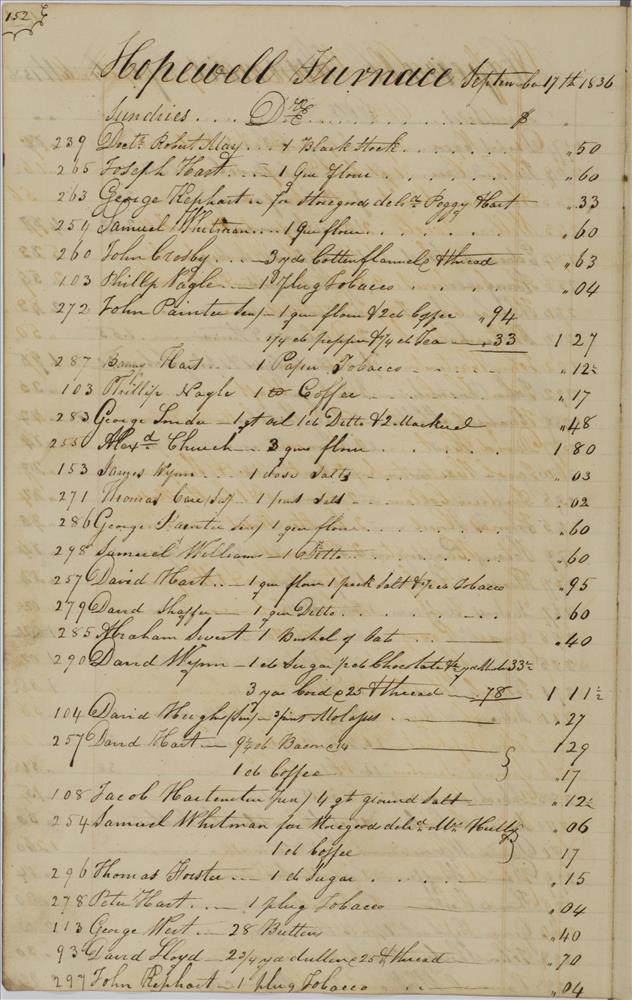 152
Hopewell Furnace September 17th 1836
Sundries . . . Drs . . . $
239 Doctr Robert May . . 1 Black Stock . . . . . . „50
265 Joseph Hart . . — 1 Qur flour . . . . . . „60
263 George Kephart — for Storegoods deld Peggy Hart „33
254 Samuel Whitman . . . . 1 Qur flour . . . . . . „60
260 John Crosby . . . — 3 yds Cotton flannel & thread „63
103 Phillip Nagle — 1 plug Tobacco . . . . „04
272 John Painter Senr — 1 qur flour & 2 lb Coffee „94
1/4 lb pepper & 1/4 lb Tea — „33 1 27
287 Hart . . — 1 Paper Tobacco — . . . . „12½
103 Phillip Nagle 1 lb Coffee — . . . . „17
283 George — 1 qt oil 1 lb Ditto & 2 Mackerel „48
255 Alexd Church — 3 qurs flour . . . . . 1 80
153 James Wynn . . . — 1 dose salts „03
271 Thomas Care — 1 pint Salt — . . . . „02
286 George Painter — 1 qur flour . . . . . „60
298 Samuel Williams — 1 Ditto . . . . „60
257 David Hart . . . — 1 qur flour 1 peck Salt & Tobacco „95
279 David Shaffer — 1 qur Ditto . . . . . „60
285 Abraham 1 Bushel of Oats . . — „40
290 David Wynn — 1 lb Sugar lb Chocolate & 33½
3 yds @ 25 & thread — „78 1 11½
104 David Hugh — 3 pint Molasses . . — „27
257 David Hart — 9½ lb Bacon — 1 29
1 lb Coffee „17
108 Jacob 4 qt ground Salt — „12½
254 Samuel Whitman for Storegoods deld Mrs „06
1 lb Coffee 17
296 Thomas — 1 lb Sugar . . . . . „15
278 Peter Hart . . . — 1 plug Tobacco — „04
113 George West — 28 Buttons „40
93 David Lloyd — 2 3/4 yd @ 25 & thread — „70
297 John Kephart — 1 plug Tobacco . . — „04